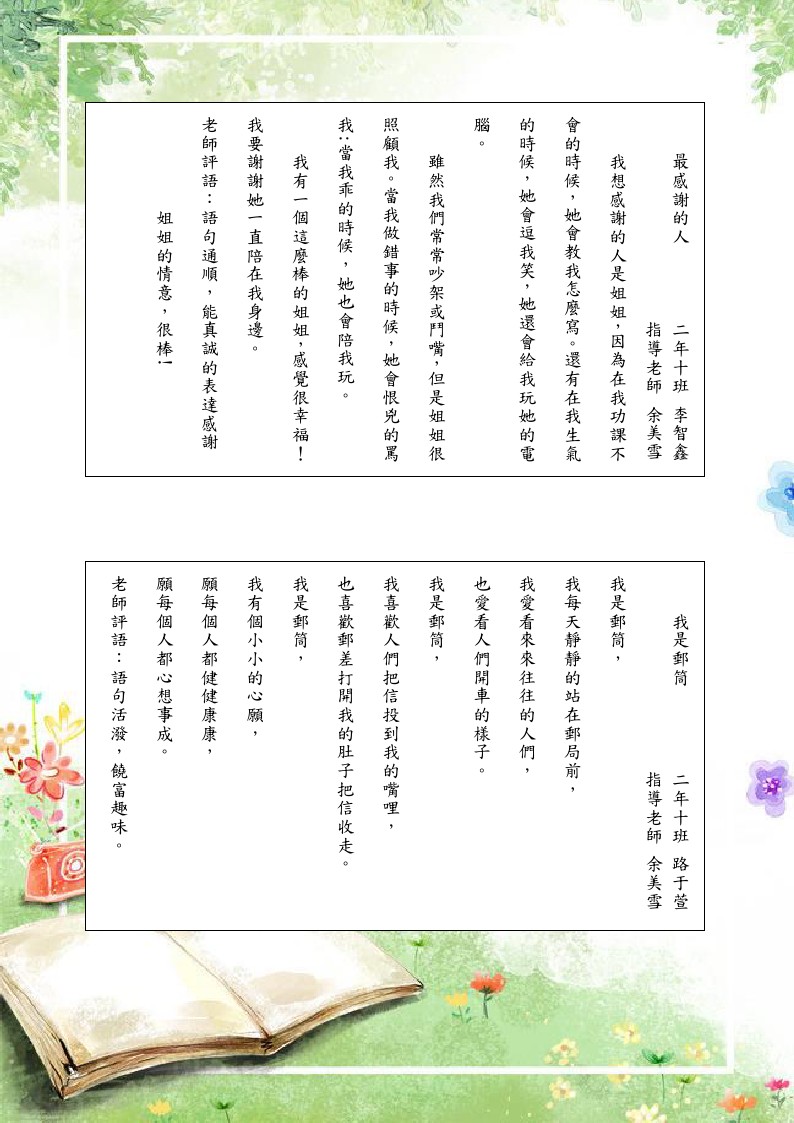 最感謝的人
二年十班 李智鑫
指導老師 余美雪
我想感謝的人是姐姐，因為在我功課不
會的時候，她會教我怎麼寫。還有在我生氣
的時候，她會逗我笑，她還會給我玩她的電
腦。
雖然我們常常吵架或鬥嘴，但是姐姐很
照顧我。當我做錯事的時候，她會恨兇的罵
我；當我乖的時候，她也會陪我玩。
我有一個這麼棒的姐姐，感覺很幸福！
我要謝謝她一直陪在我身邊。
老師評語：語句通順，能真誠的表達感謝
姐姐的情意，很棒！
我是郵筒
二年十班 路于萱
指導老師 余美雪
我是郵筒，
我每天靜靜的站在郵局前，
我愛看來來往往的人們，
也愛看人們開車的樣子。
我是郵筒，
我喜歡人們把信投到我的嘴哩，
也喜歡郵差打開我的肚子把信收走。
我是郵筒，
我有個小小的心願，
願每個人都健健康康，
願每個人都心想事成。
老師評語：語句活潑，饒富趣味。